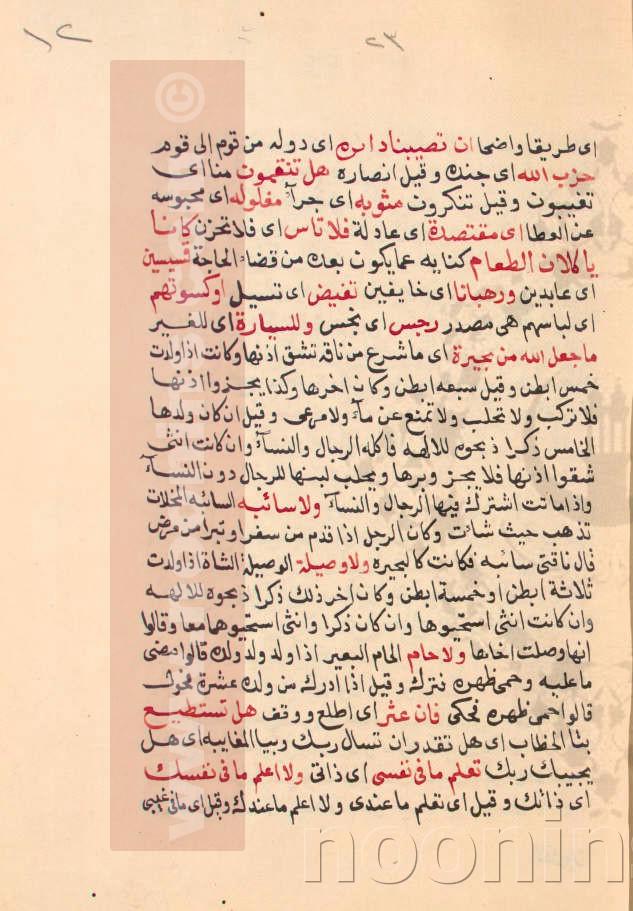 ٢٣
١٢
اى طريقا واضحا ان تصيبنا دايره اى دوله من قوم الى قوم
حزب الله اى جنك وقيل انصاره هل تنقمون منا اى
تعيبون وقيل تنكرون مثوبه اى جرآ مغلوله اى محبوسه
عن العطا اى مقتصدة اى عادلة فلا تاس اى فلا تحزن كانا
ياكلان الطعام كنايه عما يكون بعده من قضاء الحاجة قسيسين
اى عابدين ورهبانا اى خايفين تفيض اى تسيل او كسوتهم
اى لباسهم هى مصدر رجس اى نجس وللسيارة اى للغير
ماجعل الله من بحيرة اى ما شرع من ناقه تشق اذنها وكانت اذا ولدت
خمس ابطن وقيل سبعه ابطن وكان اخرها وكذا يجزوا اذنها
فلا تركب ولا تحلب ولا تمنع عن مآء ولا مرعى وقيل ان كان ولدها
الخامس ذكرا ذبحوه للالهه فاكله الرجال والنسآء وان كانت انثى
شقوا اذنها فلا يجز وبرها ويحلب لبنها للرجال دون النسآء
واذا ماتت اشترك فيها الرجال والنسآ ولا سائبه السائبه المخلات
تذهب حيث شائت وكان الرجل اذا قدم من سفر او تبرا من مرض
قال ناقتى سائبه فكانت كالبحيره ولا وصيلة الوصيلة الشاة اذا ولدت
ثلاثة ابطن او خمسة ابطن وكان اخر ذلك ذكرا ذبحوه للالهه
وان كانت انثى استحيوها وان كان ذكرا وانثى استحيوهما معا وقالوا
انها وصلت اخاها ولا حام الحام البعير اذا ولد ولد ولده قالوا قضى
ما عليه وحمى ظهره فتترك وقيل اذا ادرك من ولده عشرة فحول
قالوا حمى ظهره فحكى فان عثر اى اطلع ووقف هل تستطيع
بتا الخطاب اى هل تقدر ان تسال ربك وبيا المغايبه اى هل
يجيبك ربك تعلم ما فى نفسى اى ذاتى ولا اعلم ما فى نفسك
اى ذاتك وقيل اى تعلم ما عندى ولا اعلم ما عندك وقيل اى ما فى غيبى
noonin